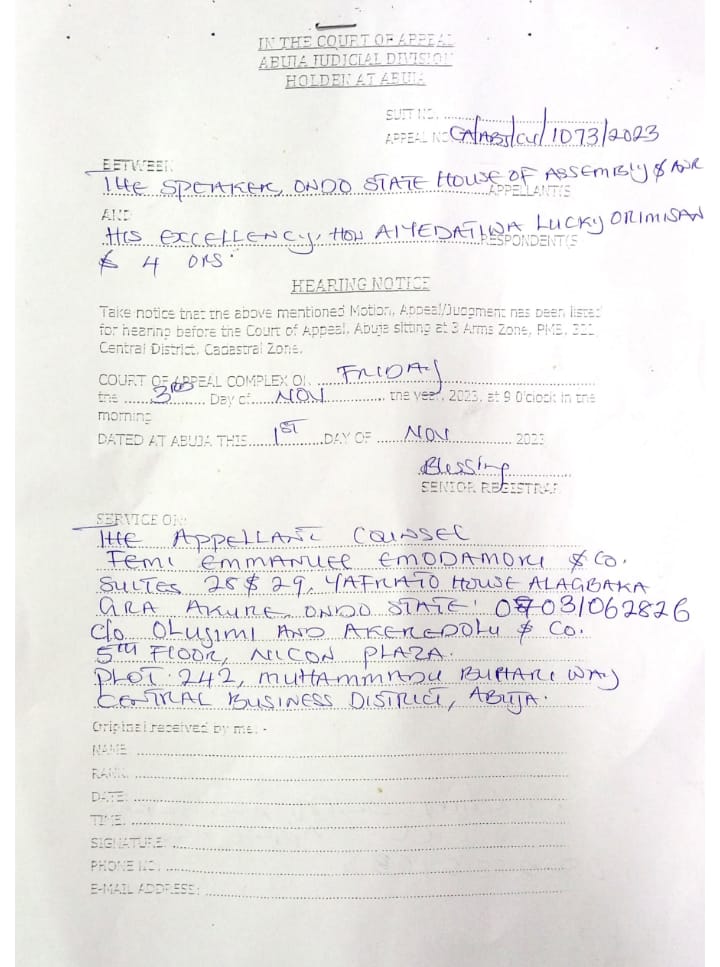 IN THE COURT OF APPEAL
ABUJA JUDICIAL DIVISION
HOLDEN AT ABUJA
SUIT NO. ....................
APPEAL NO CA/ABJ/CV/1073/2023
BETWEEN
THE SPEAKER, ONDO STATE HOUSE OF ASSEMBLY & ANR
APPELLANT/S
AND
HIS EXCELLENCY, HON AIYEDATIWA LUCKY ORIMISAN
RESPONDENT/S
& 4 ORS.
HEARING NOTICE
Take notice that the above mentioned Motion, Appeal/Judgment has been listed
for hearing before the Court of Appeal, Abuja sitting at 3 Arms Zone, PMB, 311
Central District, Cadastral Zone.
COURT OF APPEAL COMPLEX ON FRIDAY
the 3RD Day of NOV the year, 2023, at 9 O'clock in the
morning
DATED AT ABUJA THIS 1ST DAY OF NOV 2023
Blessing
SENIOR REGISTRAR
SERVICE ON:
THE APPELLANT COUNSEL
FEMI EMMANUEL EMODAMORI & CO.
SUITES 28 & 29, YAFRATO HOUSE ALAGBAKA
GRA AKURE, ONDO STATE. 08031062826
C/O OLUJIMI AND AKEREDOLU & CO.
5TH FLOOR, NICON PLAZA.
PLOT 242, MUHAMMADU BUHARI WAY
CENTRAL BUSINESS DISTRICT, ABUJA.
Original received by me: -
NAME
RANK
DATE:
TIME:
SIGNATURE:
PHONE NO:
E-MAIL ADDRESS: